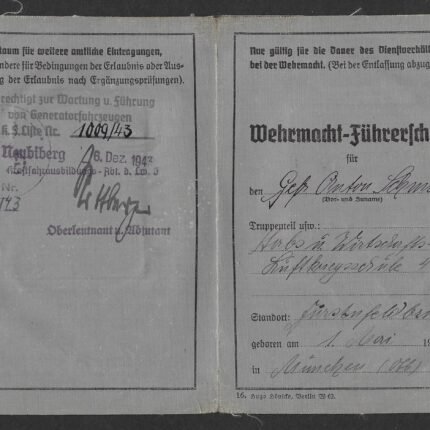 Raum für weitere amtliche Eintragungen,
sondere für Bedingungen der Erlaubnis oder Aus-
ng der Erlaubnis nach Ergänzungsprüfungen).
rechtigt zur Wartung u. Führung
von Generatorfahrzeugen
K.S. Liste Nr. 1009/43
Neubiberg 8. Dez. 1943
Kraftfahrausbildungs-Abt. d. Lw. 3
Nr.
/43
Oberleutnant u. Adjutant
Nur gültig für die Dauer des Dienstverhält
bei der Wehrmacht. (Bei der Entlassung abzug
Wehrmacht-Führersch
für
den Gefr. Anton
(Vor- und Zuname)
Truppenteil usw.:
Stabs u. Wirtschafts-
Luftkriegsschule 4
Standort: Fürstenfeldbru
geboren am 1. Mai 19
in München (Obb)
16. Hugo Hönicke, Berlin W 62.